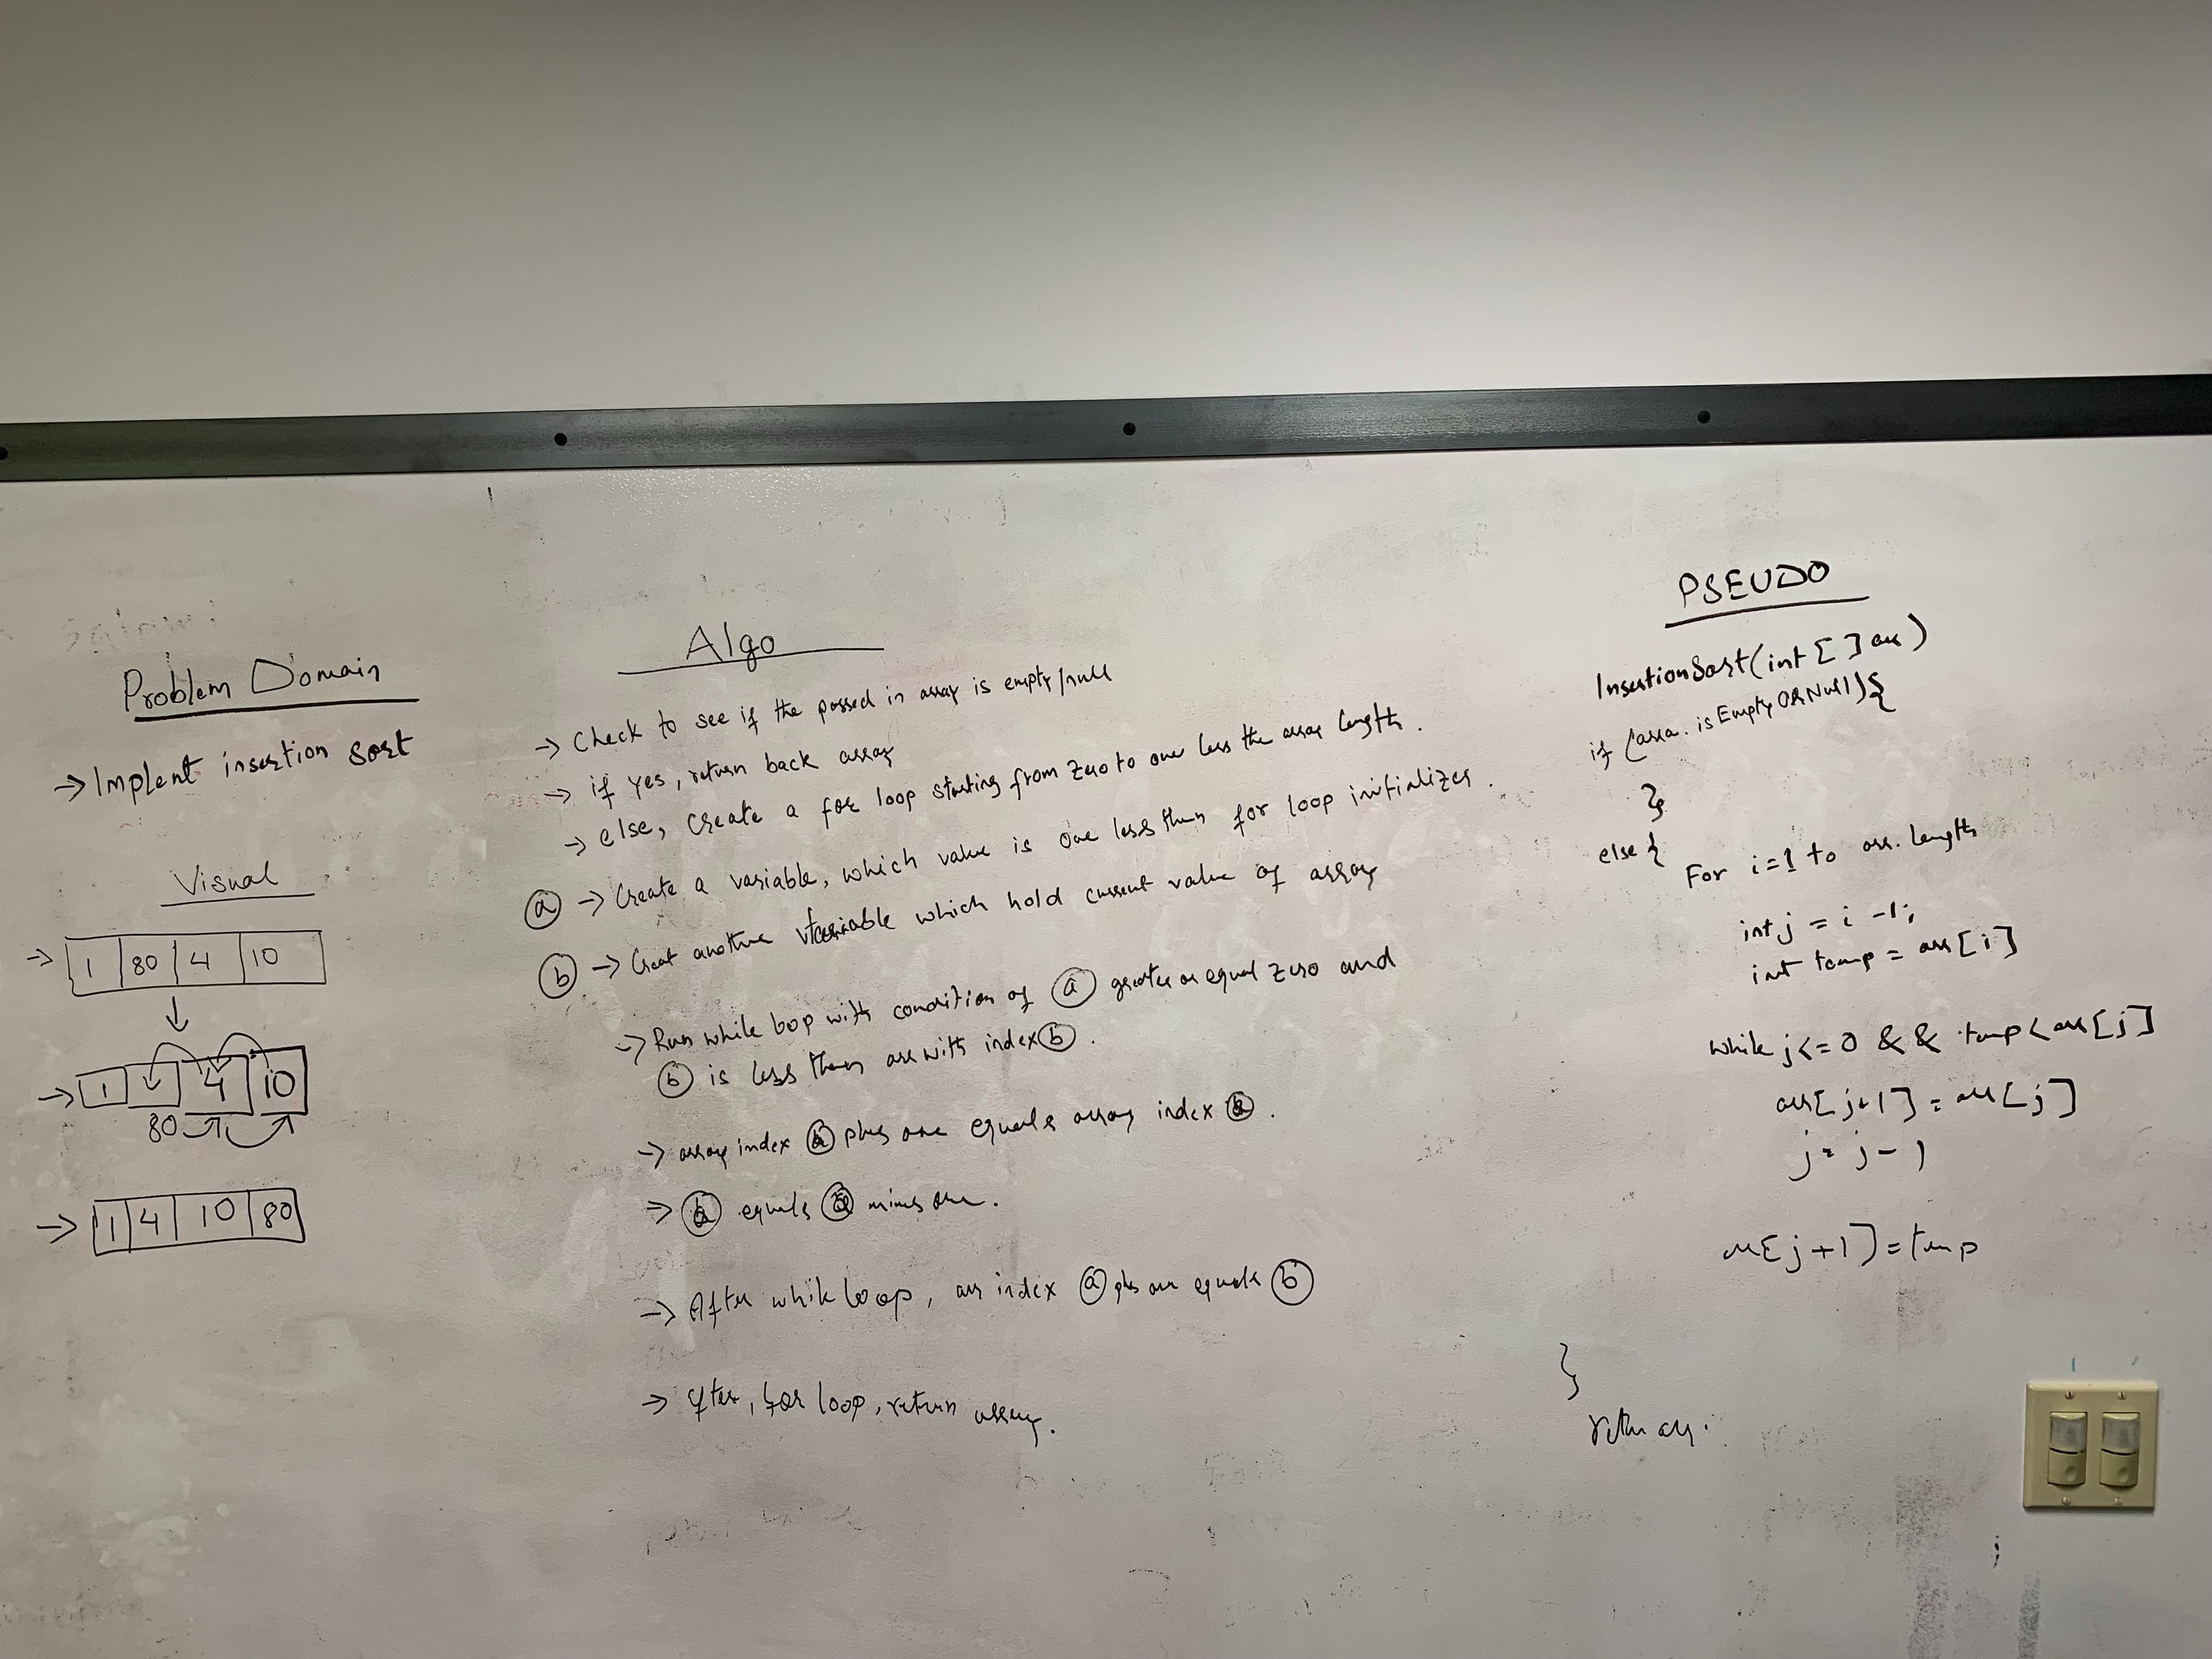 Problem Domain
→ Implent insertion sort
Visual
→ 1 80 4 10
↓
→ 1 4 10
80
→ 1 4 10 80
Algo
→ Check to see if the passed in array is empty/null
→ if yes, return back array
→ else, create a for loop starting from zero to one less the array length.
(a) → Create a variable, which value is one less then for loop initializer.
(b) → Creat another variable which hold current value of array
→ Run while loop with condition of (a) greater or equal zero and
(b) is less then arr with index (b).
→ array index plus one equals array index .
→ equals minus one.
→ After while loop, arr index (a) plus one equals (b)
→ after, for loop, return array.
PSEUDO
InsertionSort(int [ ] arr)
if (arra. is Empty OR Null) {
}
else {
For i=1 to arr. length
int j = i -1;
int temp = arr[i]
while j<=0 && tmp < arr[j]
arr[j+1] = arr[j]
j = j - 1
arr[j+1] = tmp
}
return arr.